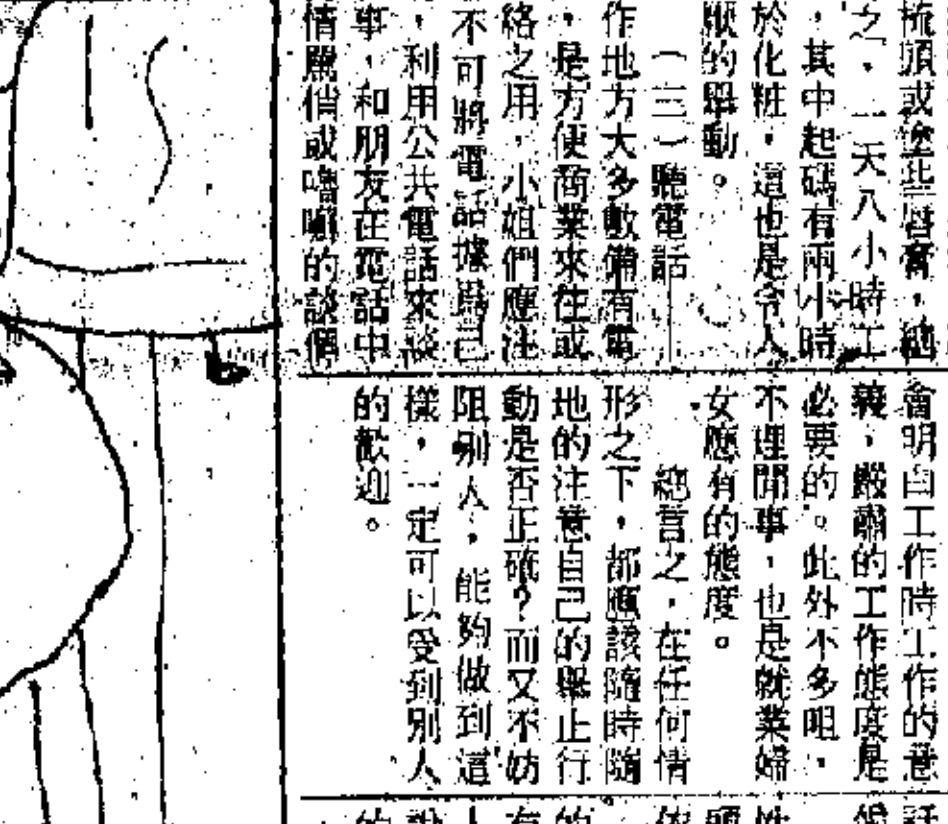 梳頭或塗些唇膏，總
之，一天八小時工
，其中起碼有兩小時
於化粧，這也是令人
厭的舉動。
（三）聽電話
作地方大多數備有電
，是方便商業來往或
絡之用，小姐們應注
不可將電話據爲己
，利用公共電話來談
事，和朋友在電話中
情罵俏或嚕囌的談個
會明白工作時工作的意
義，嚴肅的工作態度是
必要的。此外不多咀，
不理閒事，也是就業婦
女應有的態度。
總言之，在任何情
形之下，都應該隨時隨
地的注意自己的舉止行
動是否正確？而又不妨
阻别人，能夠做到這
樣，一定可以受到別人
的歡迎。